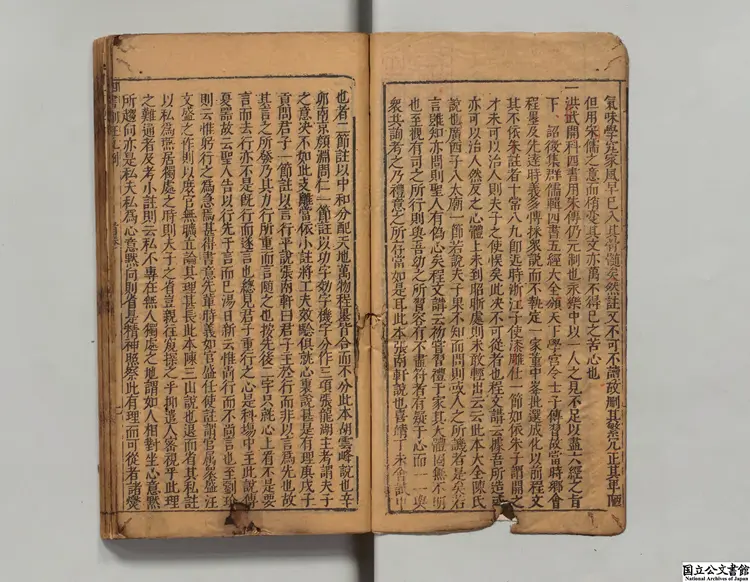 氣味學究家風早已入其骨髓矣然註文不可不讀故刪其繁冗正其卑陋
但用朱儒之意而稍變其文亦萬不得已之苦心也
一
洪武開科四書用朱傳仍元制也永樂中以一人之見不足以盡六經之旨
下 詔後集群儒輯四書五經大全頒天下學宮令士子傳習故當時鄉會
程墨及先達時義多傳採衆說而不執定一家董中峯批選成化以前程文
其不依朱註者十常八九即近時浙江子使漆雕仕一節如依朱子謂開之
才未可以治人則夫子之使悞矣此夾不可從者也程文謂云據吾所造
亦可以治人然反之心體上未到昭晰處則未敢輕出云云此本大全陳氏
說也廣西子入太廟一節若說夫子果不知而問則或人之所識者是矣若
言雖知亦問則聖人有偽心矣程文講云初嘗習禮于家其大體固無不明
三至觀有司之所行則與吾幼之所習容有不盡符者有疑于心而一一與
衆共詢考之乃禮意之所存當如是耳此本張南軒說也嘉靖丁未會試中
也者二節註以中和分配天地萬物程墨皆合而不分此本胡雲峰說也辛
卯南京顏淵問仁一節註以功字効字機字分作三項張龍湖主考謂夫子
之意決不如此支離當依小註將工夫效驗俱就心裏說甚是有理庚戌子
貢問君子一節註以言行平說張南軒曰君子主於行而非以言為先也故
其言之所發乃其力行所至而言隨之也按先後二字只就心上看不是要
言而去行亦不是旣行而逐言也總見君子重行之心是科場中主此說傳
夏器故云聖人告以行先于言而已湯日新云惟尚行而不尚言也至劉珎
則云惟躬行之為急焉甚得書意先輩時義如官盛任使註謂官屬衆盛汪
文盛之作則以庶官無職立論其理甚長此本陳三山說也退而省其私註
以私為燕居獨處之時則夫子之省豈親往窺探之乎抑遣人密視乎此理
之難通者反考小註則云私不專在無人獨處之地謂如人相對坐心意默
所趨向亦是私夫私為心意默向則省是精神照察此有理而可從者諸獘
国立公文書館
National Archives of Japan